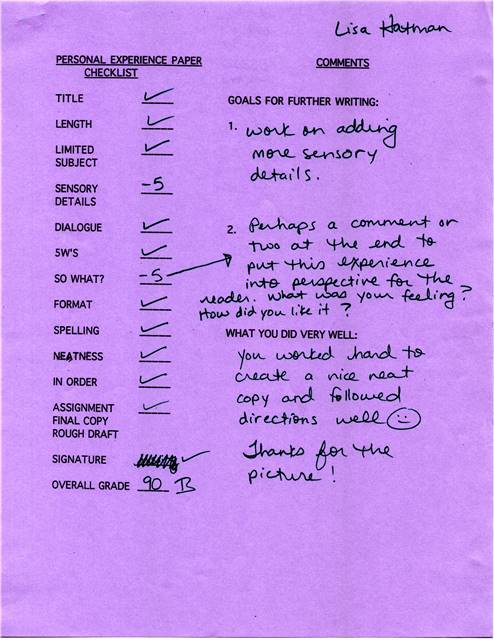 Lisa Hatman
PERSONAL EXPERIENCE PAPER
CHECKLIST
TITLE ✓
LENGTH ✓
LIMITED
SUBJECT ✓
SENSORY
DETAILS -5
DIALOGUE ✓
5W'S ✓
SO WHAT? -5
FORMAT ✓
SPELLING ✓
NEATNESS ✓
IN ORDER ✓
ASSIGNMENT ✓
FINAL COPY
ROUGH DRAFT
SIGNATURE ✓
OVERALL GRADE 90 B
COMMENTS
GOALS FOR FURTHER WRITING:
1. work on adding
more sensory
details.
2. Perhaps a comment or
two at the end to
put this experience
into perspective for the
reader. What was your feeling?
How did you like it?
WHAT YOU DID VERY WELL:
You worked hard to
create a nice neat
copy and followed
directions well
Thanks for the
picture!